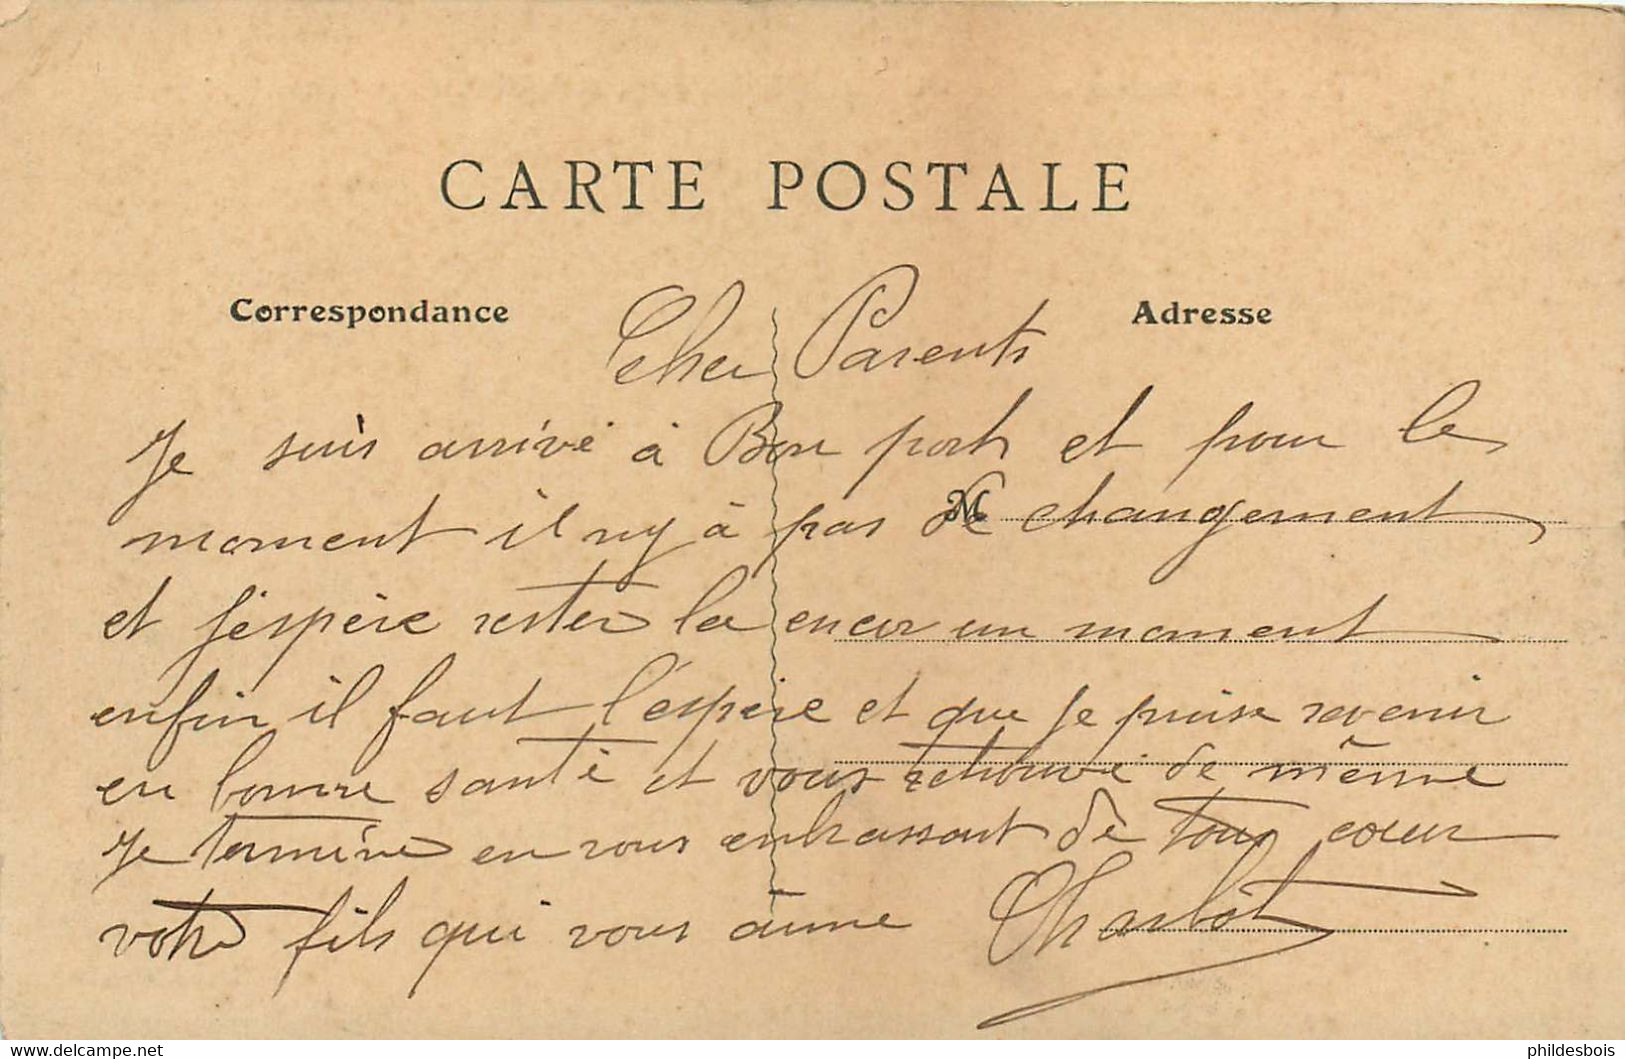 CARTE POSTALE
Correspondance
Adresse
Cher Parents
Je suis arrivé à Bon port et pour le
M
moment il ny à pas de changement
et J'espère rester la encor un moment
enfin il faut l'espère et que Je puise revenir
en bonne santé et vous retrouvé de même
Je termine en vous enbrassant de tous coeur
votre fils qui vous aime Charlot
www.delcampe.net
phildesbois